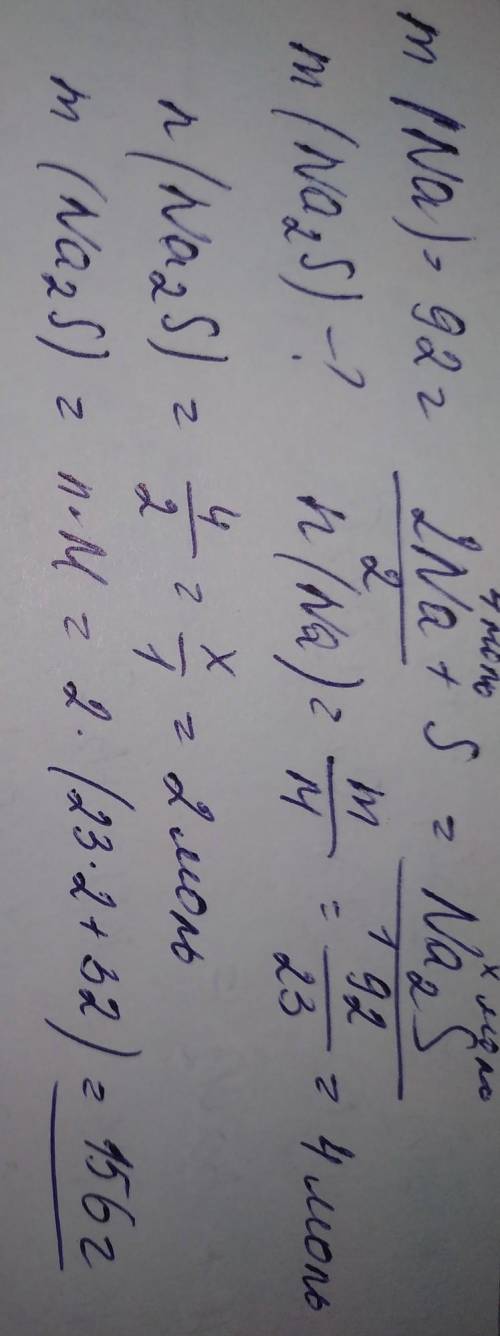 4 моль x моль
m (Na) = 92 г 2Na + S = Na₂S
2 1
m (Na₂S) - ? n (Na) = m/M = 92/23 = 4 моль
n (Na₂S) = 4/2 = x/1 = 2 моль
m (Na₂S) = n·M = 2·(23·2+32) = 156 г